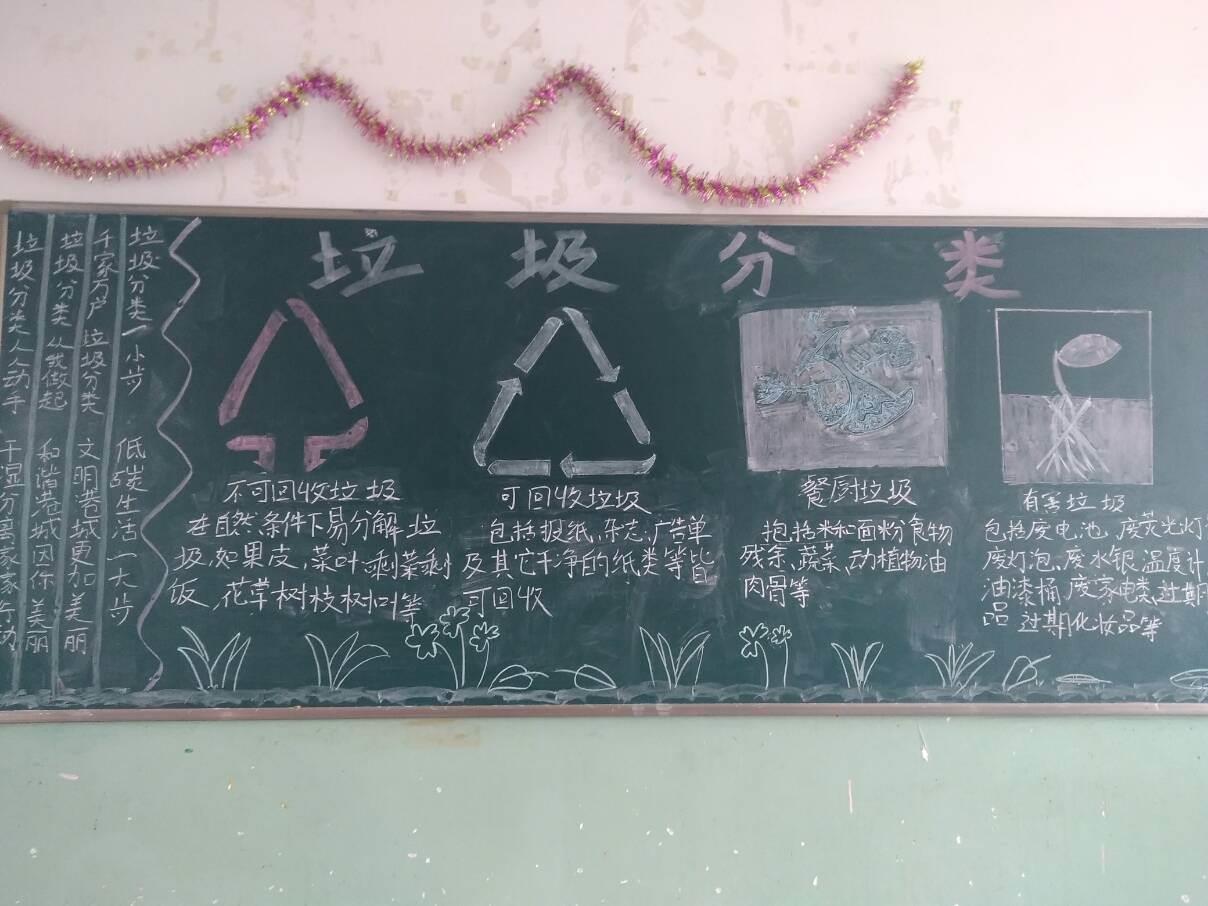 垃圾分类
垃圾分类一小步 低碳生活一大步
千家万户垃圾分类 文明港城更加美丽
垃圾分类从我做起 和谐港城因你美丽
垃圾分类人人动手 干湿分离家家行动
不可回收垃圾
在自然条件下易分解垃
圾,如果皮,菜叶,剩菜剩
饭,花草树枝树叶等
可回收垃圾
包括报纸、杂志、广告单
及其它干净的纸类等皆
可回收
餐厨垃圾
抱括米和面粉食物
残余、蔬菜、动植物油
肉骨等
有害垃圾
包括废电池、废荧光灯
废灯泡、废水银温度计
油漆桶、废家电类、过期
品、过期化妆品等